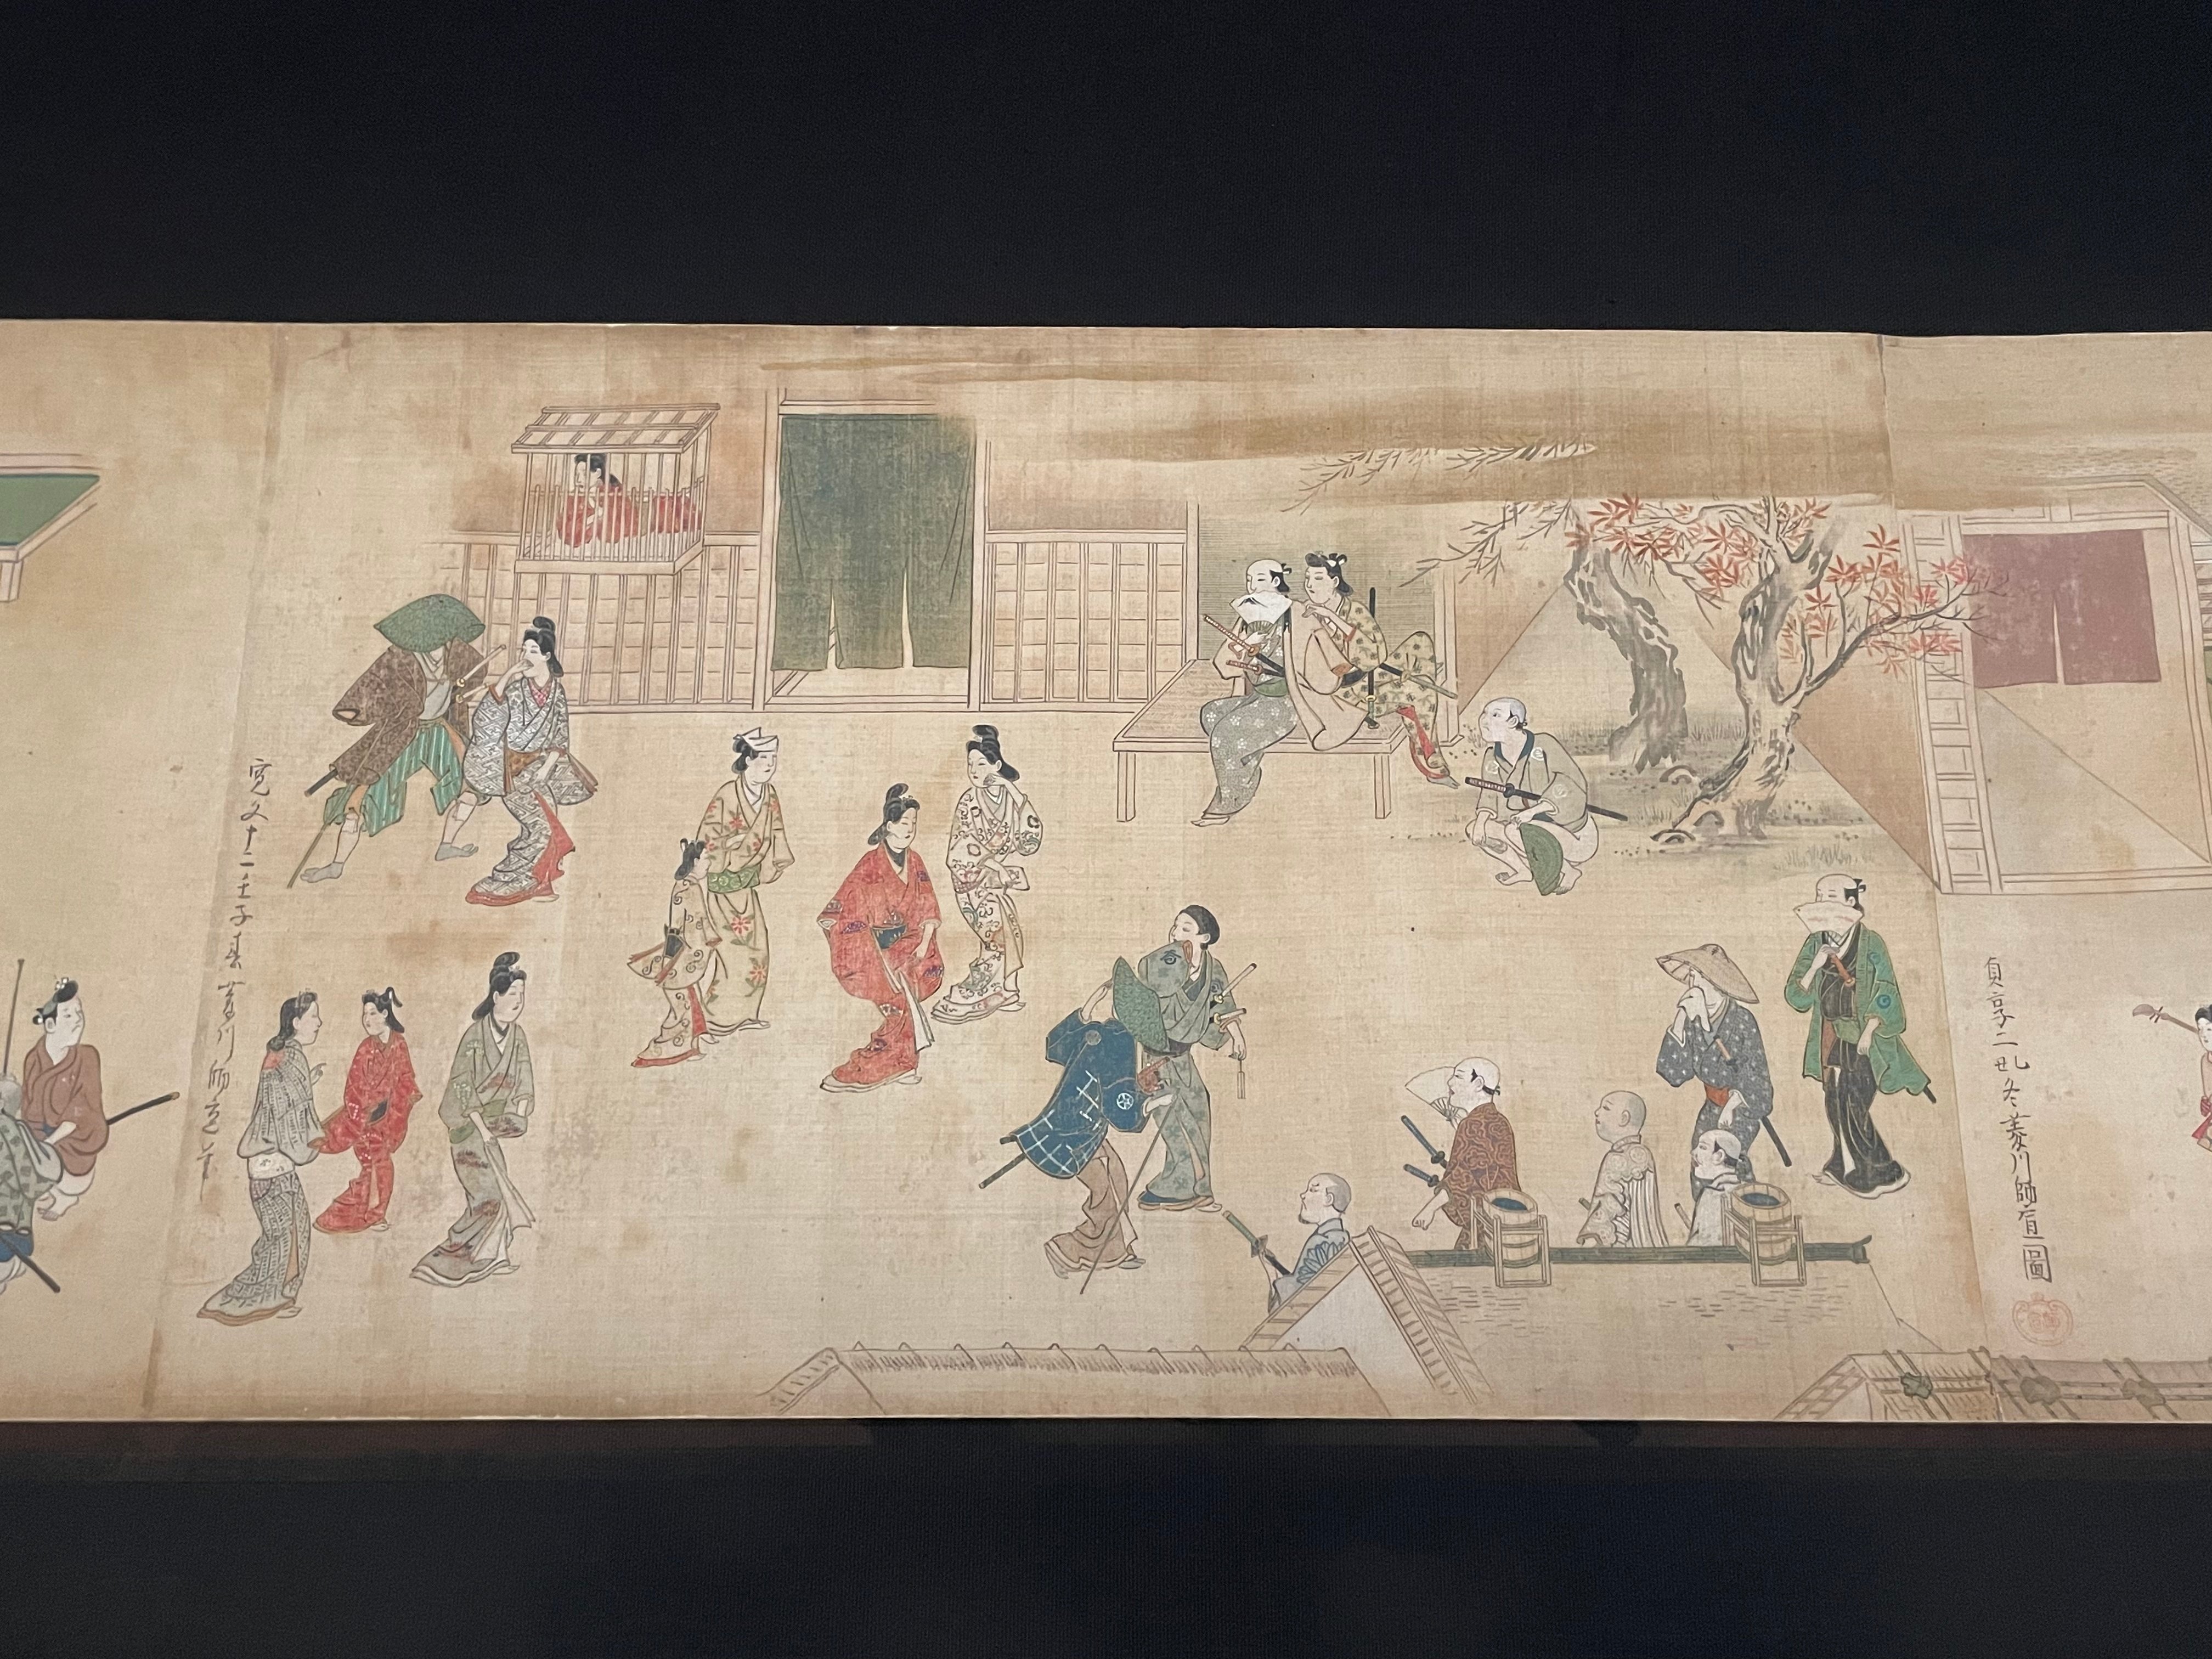 貞享二乙丑冬菱川師宣圖
寛文十二壬子春菱川師宣筆